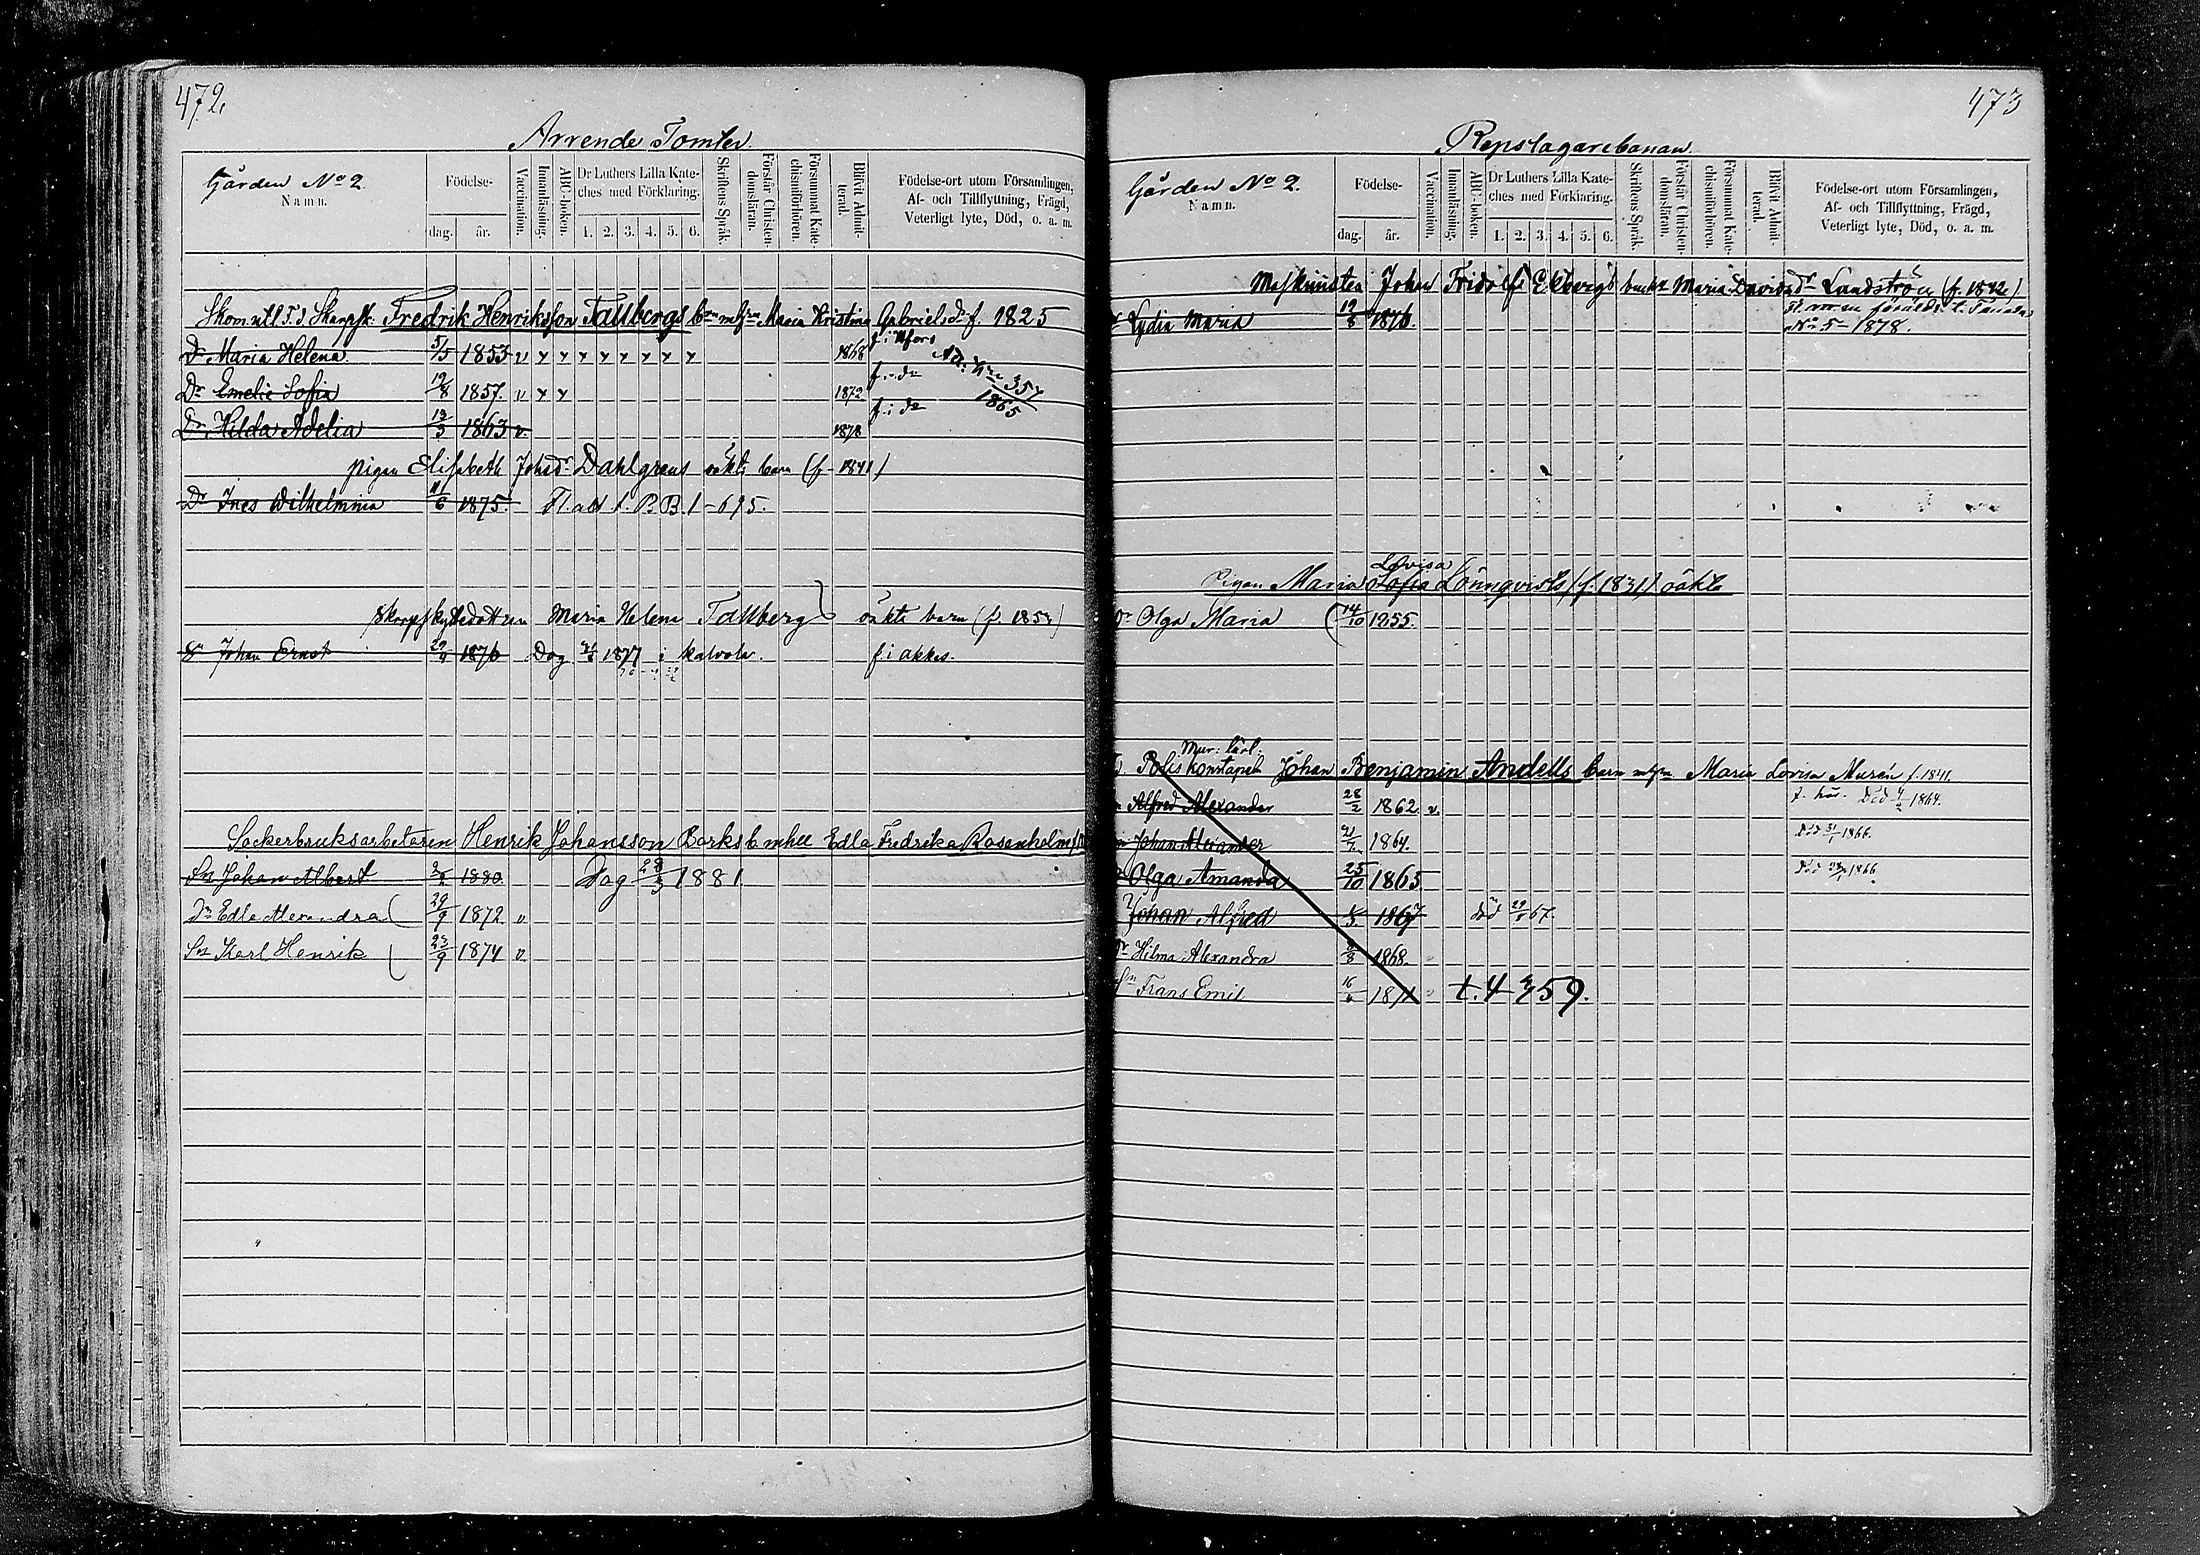 472.
Arrende Tomter.
Gården No 2.
Namn.
Födelse-
dag. år.
Vaccination.
Innanläsning.
ABC-boken.
Dr Luthers Lilla Kate-
ches med Förklaring.
1. 2. 3. 4. 5. 6.
Skriftens Språk.
Förstår Christen-
domsläran.
Försummat Kate-
chismiförhören.
Blifvit Admit-
terad.
Födelse-ort utom Församlingen,
Af- och Tillflyttning, Frägd,
Veterligt lyte, Död, o. a. m.
Fredrik Henriksson Tallbergs Maria Kristina Gabrielsdr f. 1825
Dr Maria Helena 5/5 1853 v 1868
Dr Emelie Sofia 19/8 1857. v 1872 f. i do
Dr Hilda Adelia 12/3 1863 v. 1878 f. i do
357
1865
pigan Elisabeth Johsdr Dahlgrens oäkta barn (f. 1841)
Dr Ines Wilhelmina 11/6 1875. P.B. 1-695.
Maria Helena Tallbergs oäkta barn
Sn Johan Ernst 1876 1877 i Kalvola.
Sockerbruksarbetaren Henrik Johansson Borks b mhu Edla Fredrika Rosenholm
Sn Johan Albert 1880 Dog 28/3 1881.
Dr Edla Alexandra 29/9 1872 v
Sn Karl Henrik 23/9 1874 v
473
Repslagarebanan.
Gården No 2.
Namn.
Födelse-
dag. år.
Vaccination.
Innanläsning.
ABC-boken.
Dr Luthers Lilla Kate-
ches med Förklaring.
1. 2. 3. 4. 5. 6.
Skriftens Språk.
Förstår Christen-
domsläran.
Försummat Kate-
chismiförhören.
Blifvit Admit-
terad.
Födelse-ort utom Församlingen,
Af- och Tillflyttning, Frägd,
Veterligt lyte, Död, o. a. m.
Maskinisten Johan Fridolf Ekbergs Maria Davidsdr Landström (f. 1842)
Lydia Maria 19/8 1876.
No 5-1878.
Lovisa
Pigan Maria Sofia Lönnqvists (f. 1831) oäkta
Dr Olga Maria 14/10 1855.
Mur: lärl:
Poliskonstapeln Johan Benjamin Andells barn Maria Lovisa Murén f. 1841.
Alfred Alexander 28/2 1862 v. f. här. Död 4/2 1864.
Johan Alexander 1864. Död 31/1 1866.
Olga Amanda 25/10 1865 Död 1866
Johan Alfred 1867 död 67.
Dr Hilma Alexandra 1868.
Sn Frans Emil 1871 759.